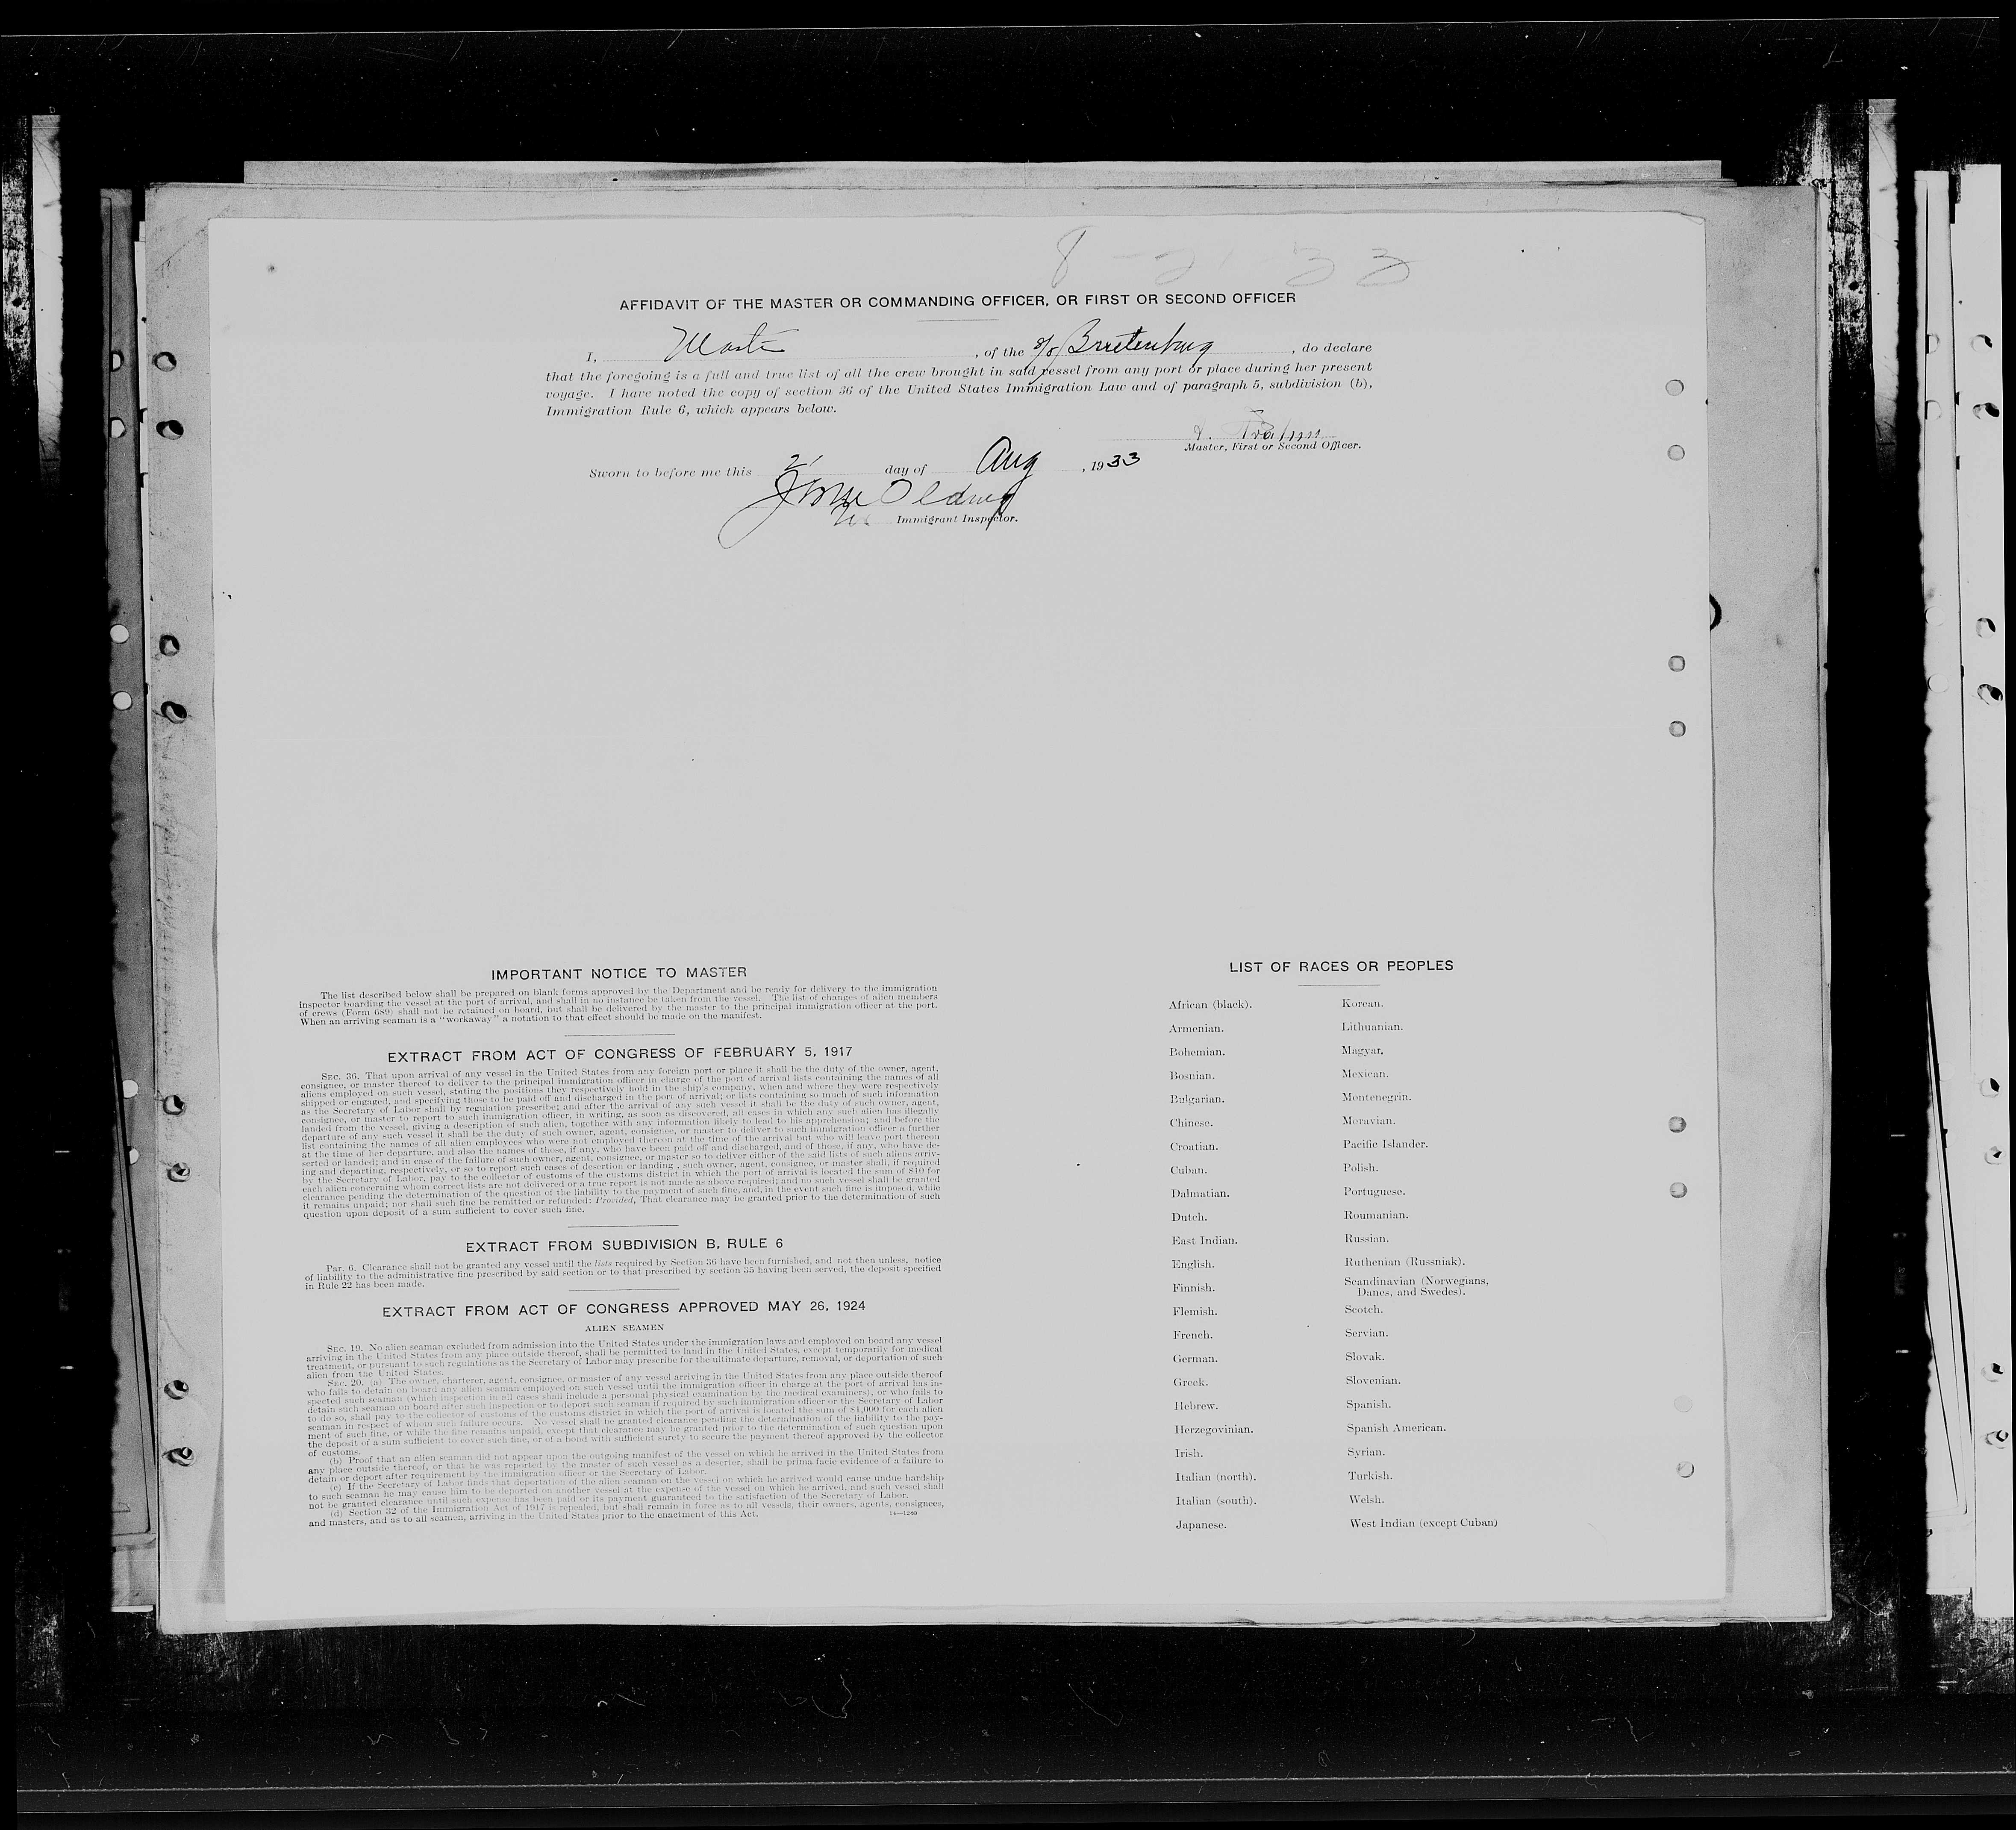 8-21-33
AFFIDAVIT OF THE MASTER OR COMMANDING OFFICER, OR FIRST OR SECOND OFFICER
I, Master, of the s/s, do declare
that the foregoing is a full and true list of all the crew brought in said vessel from any port or place during her present
voyage. I have noted the copy of section 36 of the United States Immigration Law and of paragraph 5, subdivision (b),
Immigration Rule 6, which appears below.
Master, First or Second Officer.
Sworn to before me this 21 day of Aug, 1933
Immigrant Inspector.
IMPORTANT NOTICE TO MASTER
The list described below shall be prepared on blank forms approved by the Department and be ready for delivery to the immigration
inspector boarding the vessel at the port of arrival, and shall in no instance be taken from the vessel. The list of changes of alien members
of crews (Form 689) shall not be retained on board, but shall be delivered by the master to the principal immigration officer at the port.
When an arriving seaman is a "workaway" a notation to that effect should be made on the manifest.
EXTRACT FROM ACT OF CONGRESS OF FEBRUARY 5, 1917
SEC. 36. That upon arrival of any vessel in the United States from any foreign port or place it shall be the duty of the owner, agent,
consignee, or master thereof to deliver to the principal immigration officer in charge of the port of arrival lists containing the names of all
aliens employed on such vessel, stating the positions they respectively hold in the ship's company, when and where they were respectively
shipped or engaged, and specifying those to be paid off and discharged in the port of arrival; or lists containing so much of such information
as the Secretary of Labor shall by regulation prescribe; and after the arrival of any such vessel it shall be the duty of such owner, agent,
consignee, or master to report to such immigration officer, in writing, as soon as discovered, all cases in which any such alien has illegally
landed from the vessel, giving a description of such alien, together with any information likely to lead to his apprehension; and before the
departure of any such vessel it shall be the duty of such owner, agent, consignee, or master to deliver to such immigration officer a further
list containing the names of all alien employees who were not employed thereon at the time of the arrival but who will leave port thereon
at the time of her departure, and also the names of those, if any, who have been paid off and discharged, and of those, if any, who have de-
serted or landed; and in case of the failure of such owner, agent, consignee, or master so to deliver either of the said lists of such aliens arriv-
ing and departing, respectively, or so to report such cases of desertion or landing , such owner, agent, consignee, or master shall, if required
by the Secretary of Labor, pay to the collector of customs of the customs district in which the port of arrival is located the sum of $10 for
each alien concerning whom correct lists are not delivered or a true report is not made as above required; and no such vessel shall be granted
clearance pending the determination of the question of the liability to the payment of such fine, and, in the event such fine is imposed, while
it remains unpaid; nor shall such fine be remitted or refunded: Provided, That clearance may be granted prior to the determination of such
question upon deposit of a sum sufficient to cover such fine.
EXTRACT FROM SUBDIVISION B, RULE 6
Par. 6. Clearance shall not be granted any vessel until the lists required by Section 36 have been furnished, and not then unless, notice
of liability to the administrative fine prescribed by said section or to that prescribed by section 35 having been served, the deposit specified
in Rule 22 has been made.
EXTRACT FROM ACT OF CONGRESS APPROVED MAY 26, 1924
ALIEN SEAMEN
SEC. 19. No alien seaman excluded from admission into the United States under the immigration laws and employed on board any vessel
arriving in the United States from any place outside thereof, shall be permitted to land in the United States, except temporarily for medical
treatment, or pursuant to such regulations as the Secretary of Labor may prescribe for the ultimate departure, removal, or deportation of such
alien from the United States.
SEC. 20. (a) The owner, charterer, agent, consignee, or master of any vessel arriving in the United States from any place outside thereof
who fails to detain on board any alien seaman employed on such vessel until the immigration officer in charge at the port of arrival has in-
spected such seaman (which inspection in all cases shall include a personal physical examination by the medical examiners), or who fails to
detain such seaman on board after such inspection or to deport such seaman if required by such immigration officer or the Secretary of Labor
to do so, shall pay to the collector of customs of the customs district in which the port of arrival is located the sum of $1,000 for each alien
seaman in respect of whom such failure occurs. No vessel shall be granted clearance pending the determination of the liability to the pay-
ment of such fine, or while the fine remains unpaid, except that clearance may be granted prior to the determination of such question upon
the deposit of a sum sufficient to cover such fine, or of a bond with sufficient surety to secure the payment thereof approved by the collector
of customs.
(b) Proof that an alien seaman did not appear upon the outgoing manifest of the vessel on which he arrived in the United States from
any place outside thereof, or that he was reported by the master of such vessel as a deserter, shall be prima facie evidence of a failure to
detain or deport after requirement by the immigration officer or the Secretary of Labor.
(c) If the Secretary of Labor finds that deportation of the alien seaman on the vessel on which he arrived would cause undue hardship
to such seaman he may cause him to be deported on another vessel at the expense of the vessel on which he arrived, and such vessel shall
not be granted clearance until such expense has been paid or its payment guaranteed to the satisfaction of the Secretary of Labor.
(d) Section 32 of the Immigration Act of 1917 is repealed, but shall remain in force as to all vessels, their owners, agents, consignees,
and masters, and as to all seamen, arriving in the United States prior to the enactment of this Act.
14—1240
LIST OF RACES OR PEOPLES
African (black).
Armenian.
Bohemian.
Bosnian.
Bulgarian.
Chinese.
Croatian.
Cuban.
Dalmatian.
Dutch.
East Indian.
English.
Finnish.
Flemish.
French.
German.
Greek.
Hebrew.
Herzegovinian.
Irish.
Italian (north).
Italian (south).
Japanese.
Korean.
Lithuanian.
Magyar.
Mexican.
Montenegrin.
Moravian.
Pacific Islander.
Polish.
Portuguese.
Roumanian.
Russian.
Ruthenian (Russniak).
Scandinavian (Norwegians,
Danes, and Swedes).
Scotch.
Servian.
Slovak.
Slovenian.
Spanish.
Spanish American.
Syrian.
Turkish.
Welsh.
West Indian (except Cuban)